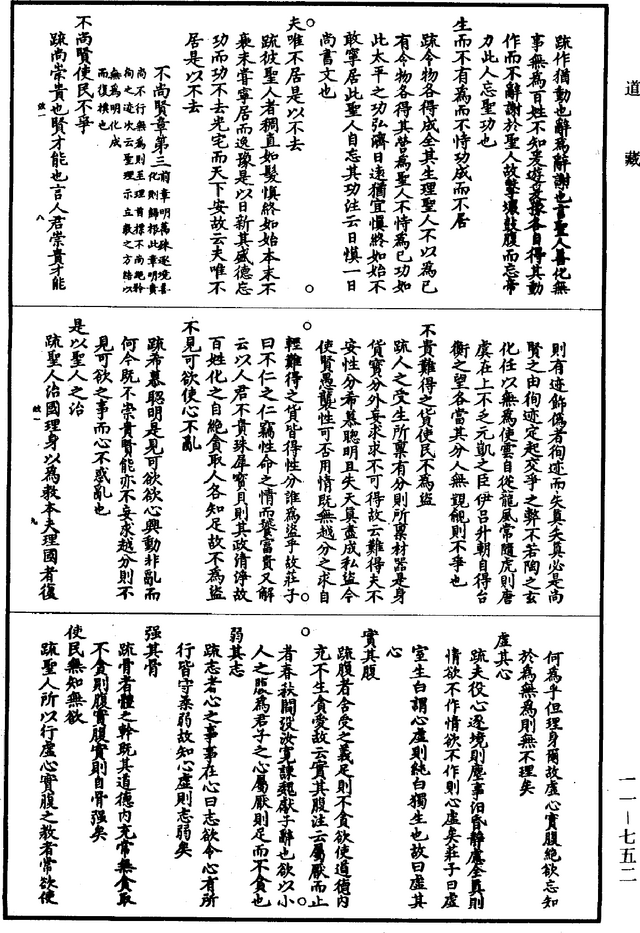 道藏
疏作猶動也辭為辭謝也言聖人善化無
事無為百姓不知爰遊爰豫各自得其動
作而不辭謝於聖人故擊壤鼓腹而忘帝
力此人忘聖功也
生而不有為而不恃功成而不居
疏令物各得成全其生理聖人不以為己
有令物各得其營為聖人不恃為己功如
此太平之功弘濟日遠猶宜慎終如始不
敢寧居此聖人自忘其功注云日慎一日
尚書文也
夫唯不居是以不去
疏彼聖人者稠直如髮慎終如始本末不
衰未嘗寧居而逸豫是以日新其盛德忘
功而功不去光宅而天下安故云夫唯不
居是以不去
不尚賢章第三
前章明萬殊逐境善
化則歸根此章明貴
尚不行無為則至理首標不尚絕矜
徇之迹次云聖理示立教之方結以
無為明化成
而復樸也
不尚賢使民不爭
疏尚崇貴也賢才能也言人君崇貴才能
效一
八
則有迹飾偽者徇迹而失真失真必是尚
賢之由徇迹定起交爭之弊不若陶之玄
化任以無為使雲自從龍風常隨虎則唐
虞在上不乏元凱之臣伊呂升朝自得台
衡之望各當其分人無覬覦則不爭也
不貴難得之貨使民不為盜
疏人之受生所稟有分則所稟材器是身
貨寶分外妄求求不可得故云難得夫不
安性分希慕聰明且失天真盡成私盜令
使賢愚襲性可否用情既無越分之求自
輕難得之貨皆得性分誰為盜乎故莊子
曰不仁之仁竊性命之情而饕富貴又解
云以人君不貴珠犀寶貝則其政清淨故
百姓化之自絕貪取人各知足故不為盜
不見可欲使心不亂
疏希慕聰明是見可欲欲心興動非亂而
何今既不崇貴賢能亦不妄求越分則不
見可欲之事而心不惑亂也
是以聖人之治
疏聖人治國理身以為教本夫理國者復
效一
九
何為乎但理身爾故虛心實腹絕欲忘知
於為無為則無不理矣
虛其心
疏夫役心逐境則塵事汩昏靜慮全真則
情欲不作情欲不作則心虛矣莊子曰虛
室生白謂心虛則純白獨生也故曰虛其
心
實其腹
疏腹者含受之義足則不貪欲使道德內
充不生貪愛故云實其腹注云屬厭而止
者春秋閻沒汝寬諫魏獻子辭也欲以小
人之腹為君子之心屬厭則足而不貪也
弱其志
疏志者心之事事在心曰志欲令心有所
行皆守柔弱故知心虛則志弱矣
強其骨
疏骨者體之幹既其道德內充常無貪取
不貪則腹實腹實則自骨強矣
使民無知無欲
疏聖人所以行虛心實腹之教者常欲使
一一—七五二